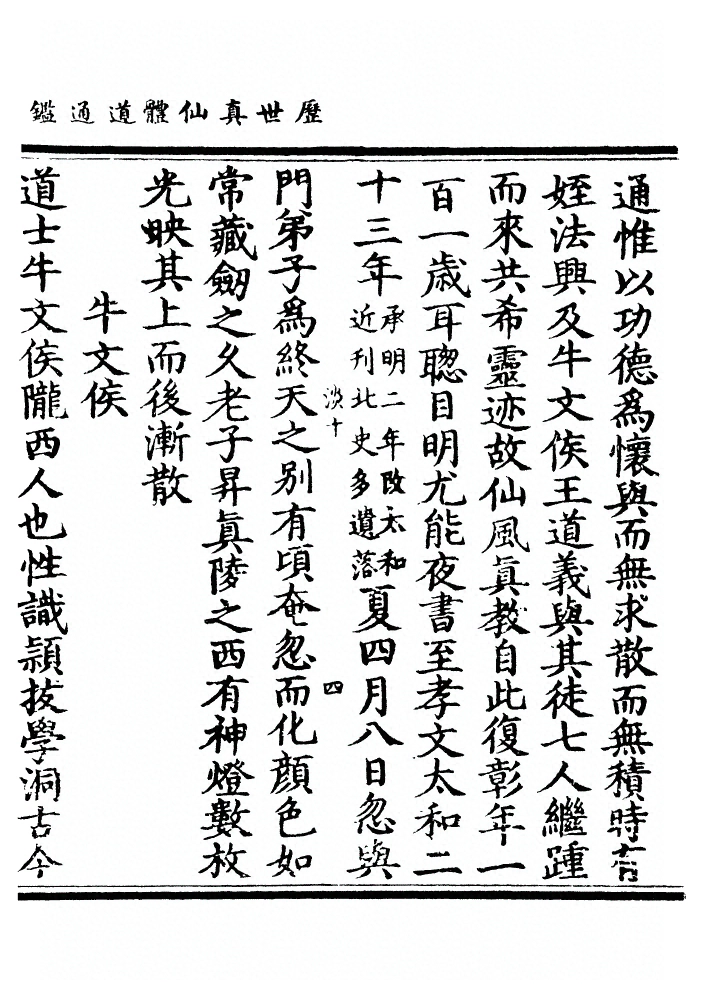 歷世真仙體道通鑑
通惟以功德爲懷與而無求散而無積時有
姪法興及牛文侯王道義與其徒七人繼踵
而來共希靈迹故仙風眞教自此復彰年一
百一歲耳聰目明尤能夜書至孝文太和二
十三年承明二年改太和近刊北史多遺落夏四月八日忽與
淡十
四
門弟子爲終天之别有頃奄忽而化顔色如
常藏劒之夕老子昇眞陵之西有神燈數枚
光映其上而後漸散
牛文侯
道士牛文侯隴西人也性識頴拔學洞古今